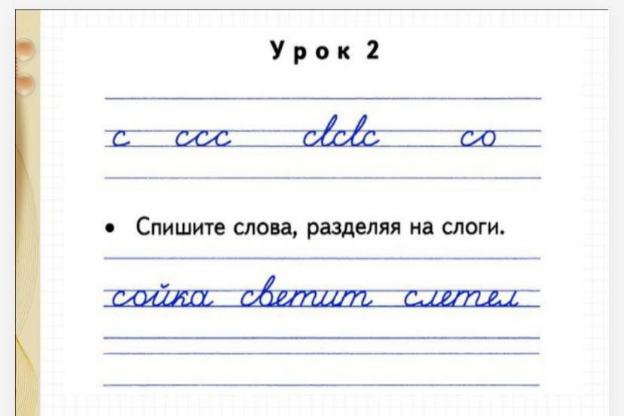 Урок 2
с ссс сlсlс со
• Спишите слова, разделяя на слоги.
сойка светит слетел